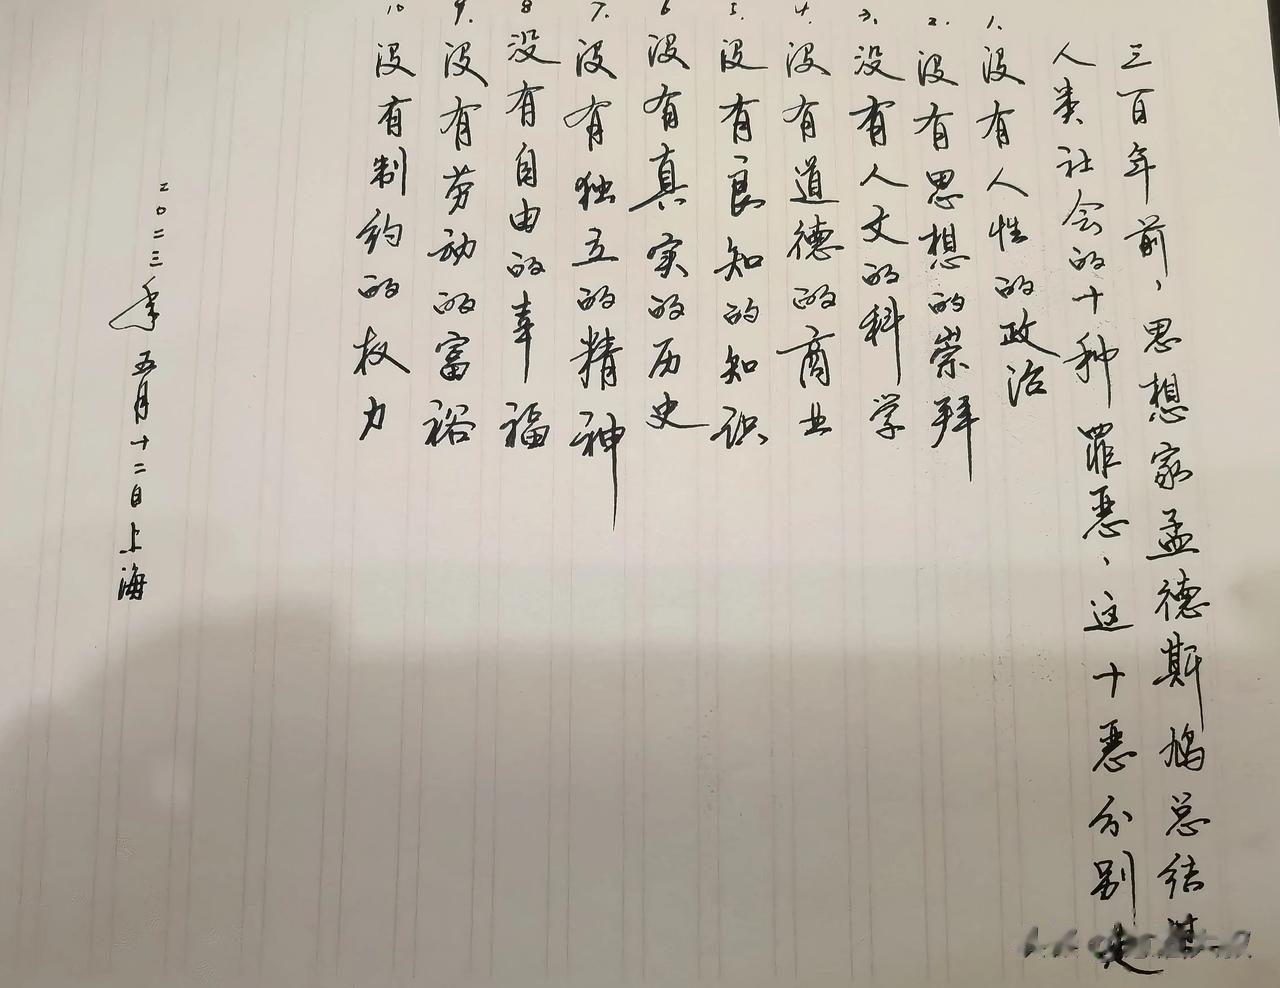 三百年前，思想家孟德斯鸠总结
人类社会的十种罪恶、这十恶分别
1. 没有人性的政治
2. 没有思想的崇拜
3. 没有人文的科学
4. 没有道德的商业
5. 没有良知的知识
6 没有真实的历史
7. 没有独立的精神
8 没有自由的幸福
9. 没有劳动的富裕
10 没有制约的权力
二0二三年五月十二日上海